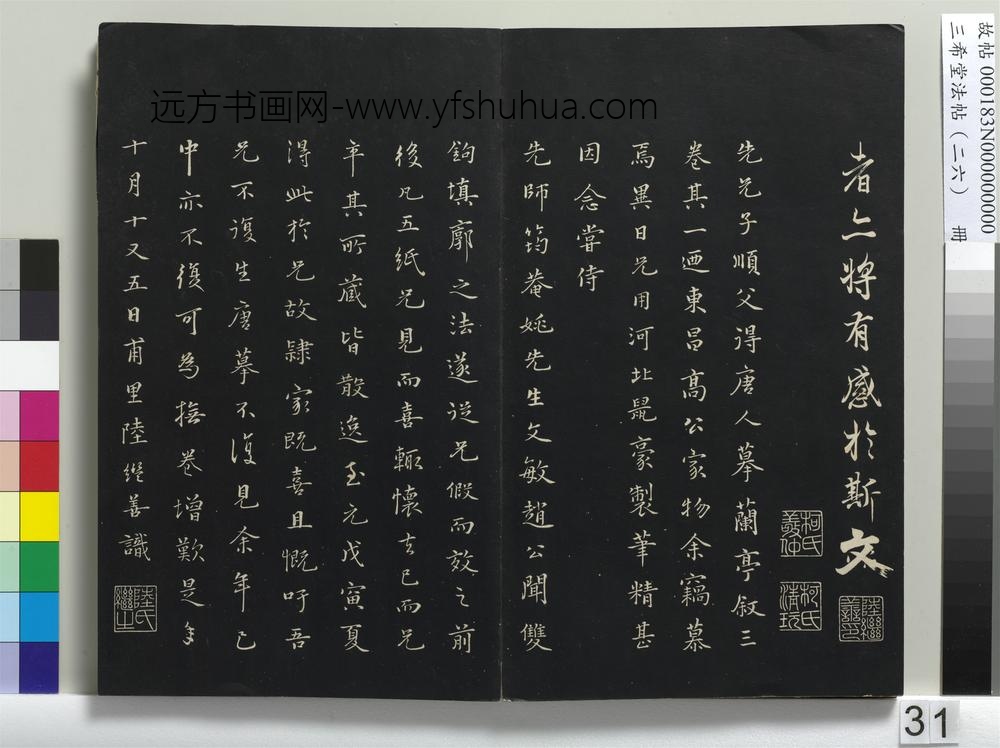 远方书画网-www.yfshuhua.com
者亦将有感於斯文
先兄子順父得唐人摹蘭亭叙三
卷其一迺東昌高公家物余竊慕
焉異日兄用河北鼠豪製筆精甚
因念嘗侍
先師筠菴姚先生文敏趙公聞雙
鉤填廓之法遂從兄假而效之前
後凡五紙兄見而喜輒懷去已而兄
卒其所藏皆散逸至元戊寅夏
得此於兄故隸家既喜且慨吁吾
兄不復生唐摹不復見余年已
中亦不復可為撫卷增歎是年
十月十又五日甫里陸繼善識
柯氏
敬仲
柯氏
清玩
陸繼
善印
陸氏
繼之
故帖 000183N000000000
三希堂法帖（二六） 冊
31